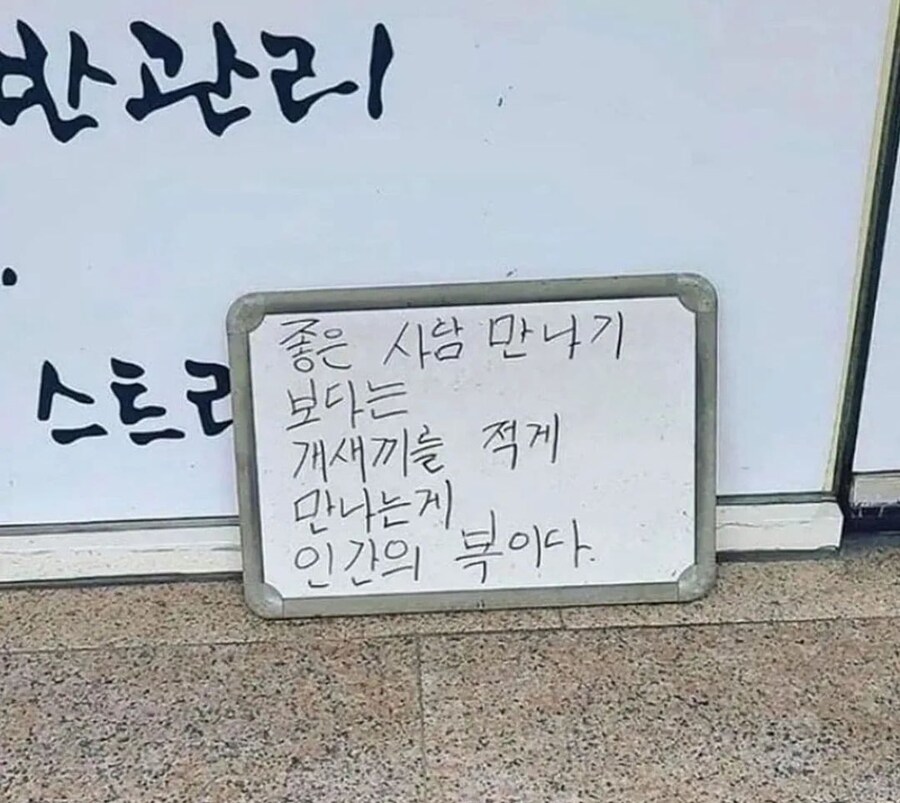 반관리
스트
좋은 사람 만나기
보다는
개새끼를 적게
만나는게
인간의 복이다.